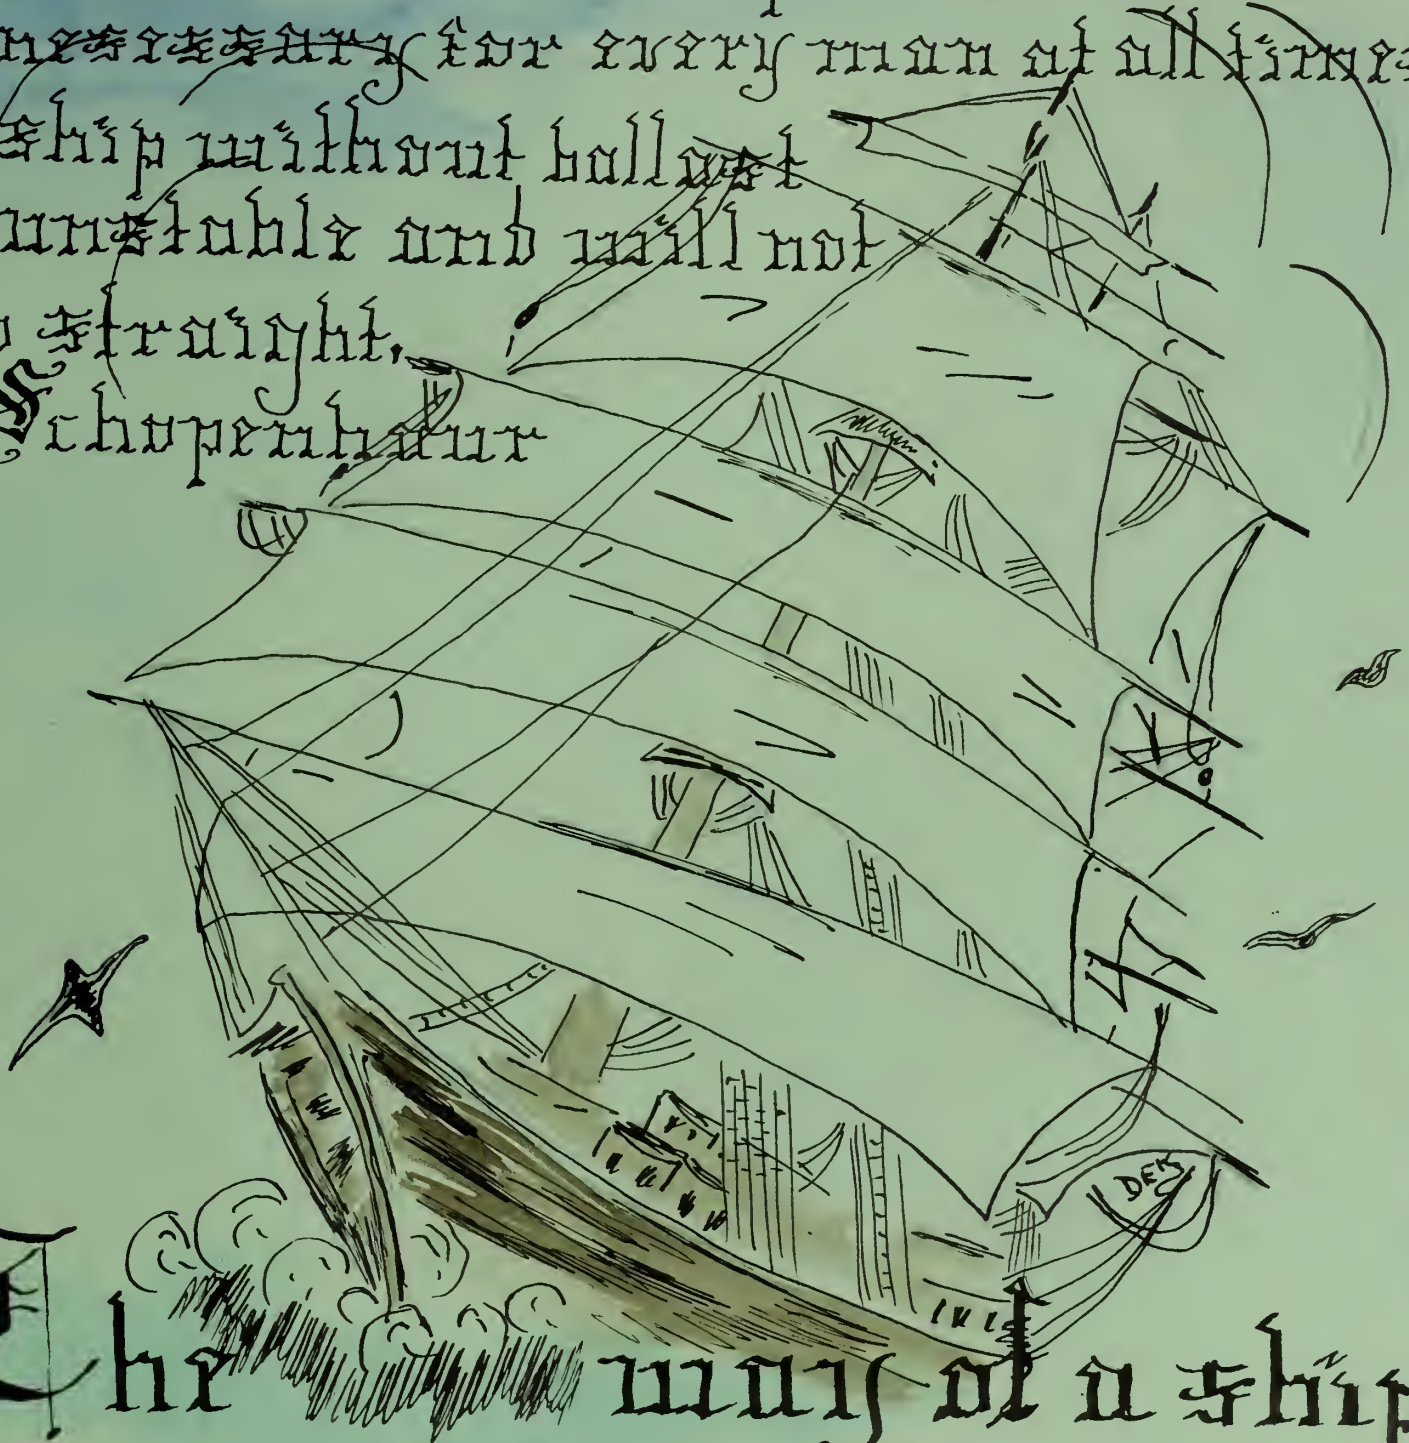 nesessary for every man at all times
ship without ballast
unstable and will not
o straight.
Schopenhaur
DEK
The way of a ship